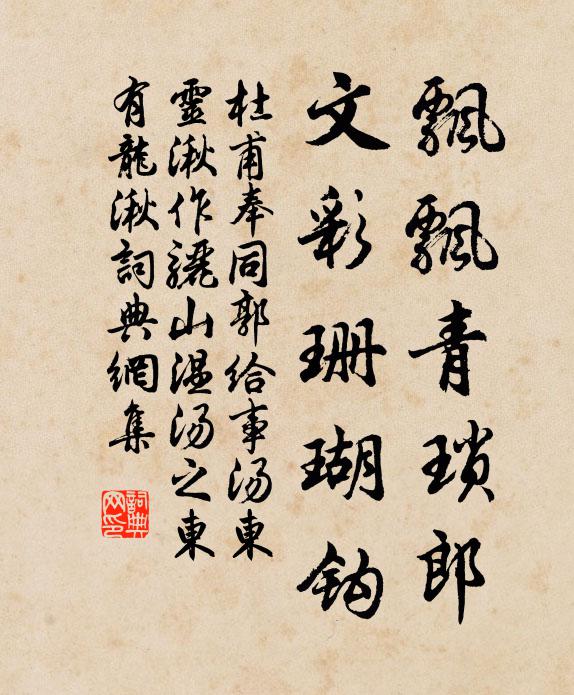 飄飄青瑣郎
文彩珊瑚鈎
杜甫奉同郭給事湯東
靈湫作驪山溫湯之東
有龍湫詞典網集
詞典
网印